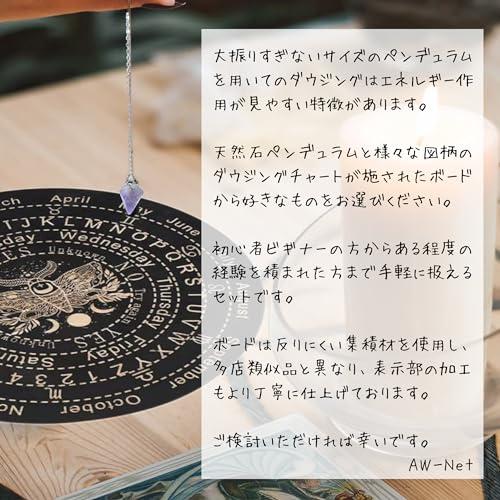 大振りすぎないサイズのペンデュラム
を用いてのダウジングはエネルギー作
用が見やすい特徴があります。
天然石ペンデュラムと様々な図柄の
ダウジングチャートが施されたボード
から好きなものをお選びください。
初心者ビギナーの方からある程度の
経験を積まれた方まで手軽に扱える
セットです。
ボードは反りにくい集積材を使用し、
多店類似品と異なり、表示部の加工
もより丁寧に仕上げております。
ご検討いただければ幸いです。
AW-Net
April
June
August
October
November
Wednesday
Thursday
Friday
Saturday
Unknown
NO
YES